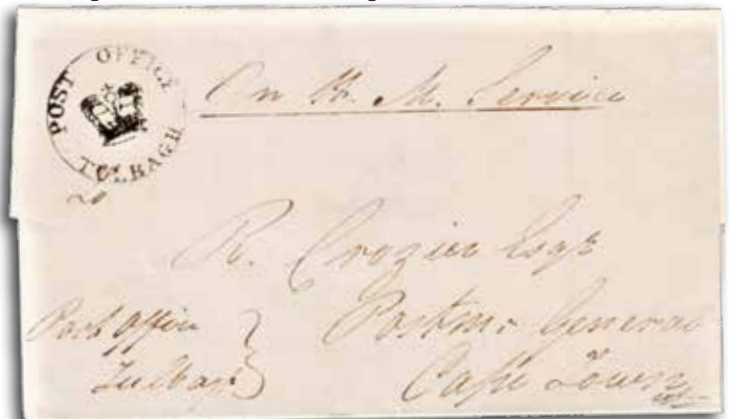 POST OFFICE
TULBAGH
On H. M. Service
To
R. Crozier Esqr
Postmr General
Cape Town
Post Office
Tulbagh